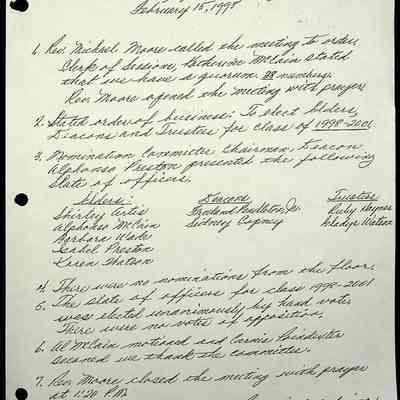 February 15, 1998
1. Rev. Michael Moore called the meeting to order.
Clerk of Session, Katherine McCain stated
that we have a quorum 28 members.
Rev. Moore opened the meeting with prayer
2. Stated order of business: To elect Elders,
Deacons and Trustees for class of 1998-2001
3. Nomination Committee Chairman, Deacon
Alphonso Preston presented the following
Slate of officers.
Elders: Deacons Trustees
Shirley Artis Pendleton, Jr. Ruby Haynes
Alphonso McCain Sidney Copney Gladys Watson
Barbara Wade
Isabel Preston
Karen Watson
4. There were no nominations from the floor.
5. The slate of officers for class 1998-2001
was elected unanimously by hand vote.
There were no votes of opposition.
6. Al McCain motioned and Carrie Poindexter
second we thank the committee.
7. Rev. Moore closed the meeting with prayer
at 1:20 P.M.